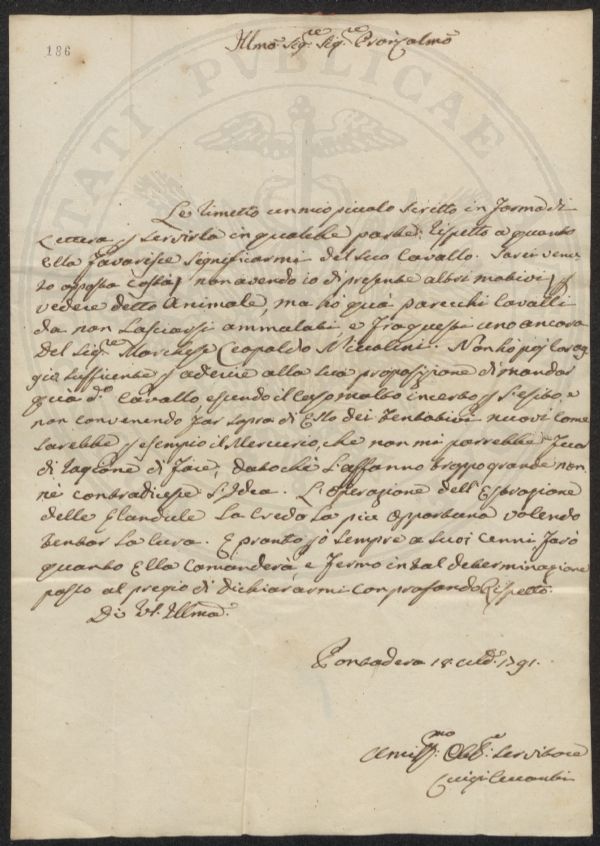 186
Illmo Sig.re Sig.re Pron Colmo
Le rimetto un mio piccolo scritto in forma di
Lettera p servirla in qualche parte. Rispetto a quanto
Ella favorisce significarmi del suo Cavallo. Sarei venu-
to apposta costà, non avendo io di presente altri motivi, p
vedere detto Animale, ma hò quà parecchi Cavalli
da non lasciarsi ammalati, e fra questi uno ancora
del Sig.re Marchese Leopoldo Niccolini. Non hò poi corag-
gio sufficiente p aderire alla sua proposizione di mandar
quà d.o Cavallo, essendo il caso molto incerto p l'esito, e
non convenendo far sopra di Esso dei tentativi nuovi come
sarebbe p esempio il Mercurio, che non mi parrebbe fuor
di ragione di fare, da che l'affanno troppo grande non
ne contradicesse l'Idea. L'Operazione dell'Estrazione
delle Glandule la credo la più opportuna volendo
tentar la cura. E pronto io sempre a suoi cenni farò
quanto Ella comanderà, e fermo in tal determinazione
passo al pregio di dichiararmi con profondo Rispetto
Di VS. Illma
Pontadera 18 1791.
Obb. Servitore
Luigi
STATI PVBLICAE